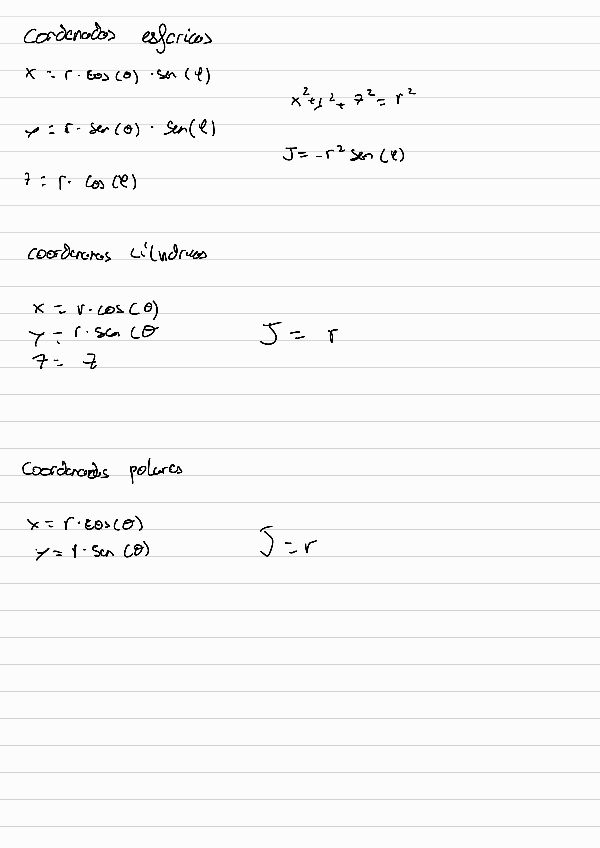 Cordenadas esfericas
x = r · cos(θ) · sen(φ)
x² + y² + z² = r²
y = r · sen(θ) · sen(φ)
J = -r² sen(φ)
z = r · cos(φ)
coordenadas cilíndricas
x = r · cos(θ)
y = r · sen(θ
J = r
z = z
Coordenadas polares
x = r · cos(θ)
y = r · sen(θ)
J = r